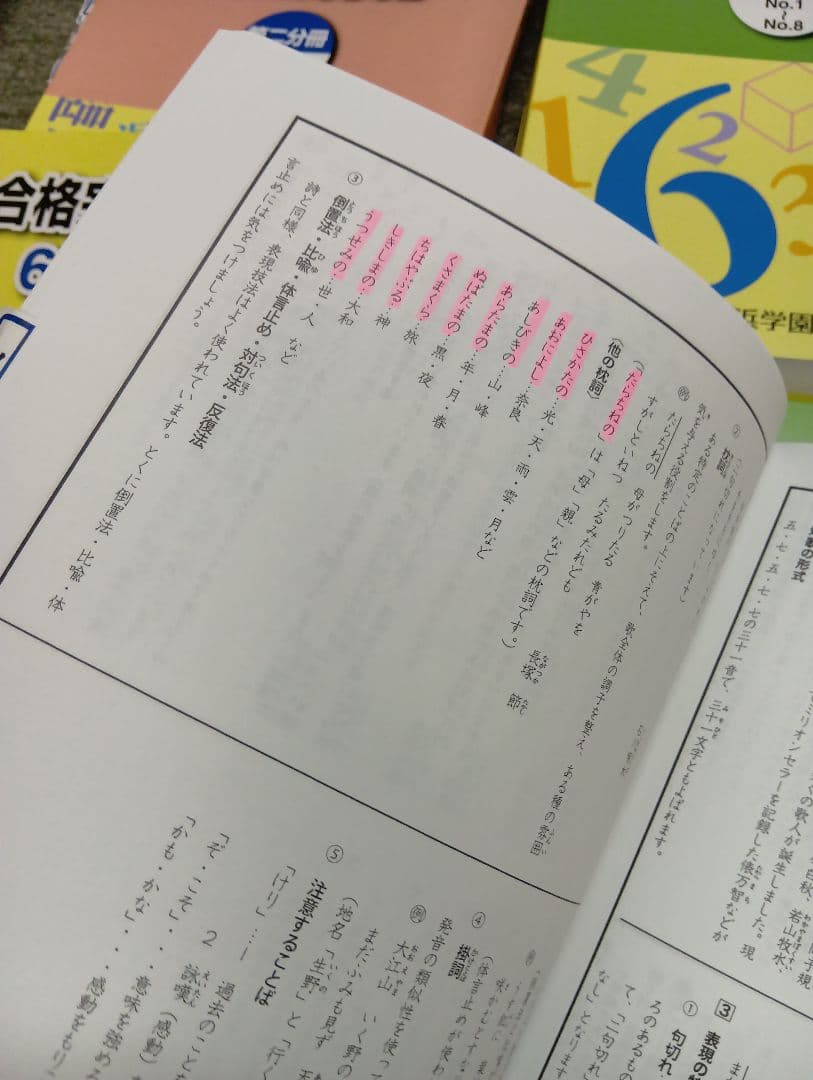 第二分冊
No.1
~
No.8
合格
6
浜学園
② 枕詞
ある特定のことばの上にそえて、歌全体の調子を整え、ある種の雰囲
気を与える役割をします。
例 たらちねの 母がつりたる 青がやを
すがしといねつ たるみたれども
長塚 節
(「たらちねの」は「母」「親」などの枕詞です。)
〈他の枕詞〉
ひさかたの…光・天・雨・雲・月など
あおによし…奈良
あしびきの…山・峰
あらたまの…年・月・春
ぬばたまの…黒・夜
くさまくら…旅
ちはやぶる…神
しきしまの…大和
うつせみの…世・人 など
③ 倒置法・比喩・体言止め・対句法・反復法
詩と同様、表現技法はよく使われています。とくに倒置法・比喩・体
言止めには気をつけましょう。
④ 掛詞
(体言止めが使わ
発音の類似性を使って
例 大江山 いく野の
まだふみも見ず 天
(地名「生野」と「行く
⑤ 注意することば
「けり」…1 過去のことを
2 詠嘆(感動)
「ぞ・こそ」・・意味を強める
「かも・かな」・・感動をもりこ
の形式
五・七・五・七・七の三十一音で、三十一文字ともよばれます。
ミリオンセラーを記録した俵万智などが
の歌人が誕生しました。現
白秋、若山牧水、
3 表現の
① 句切れ
て、「二句切れ
なし」となります